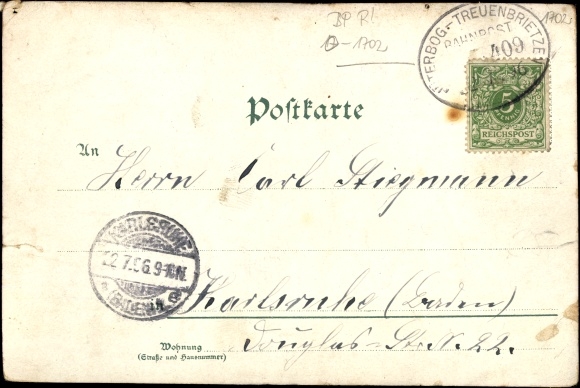 BP Rl.
1702
1702
JÜTERBOG-TREUENBRIETZEN
BAHNPOST
409
5
PFENNIG
REICHSPOST
Postkarte
An
Herrn Carl Stiegmann
KARLSRUHE
22.7.96.9-10N.
(BADEN)
Karlsruhe (Baden)
Douglas-Str. N. 22.
Wohnung
(Straße und Hausnummer)